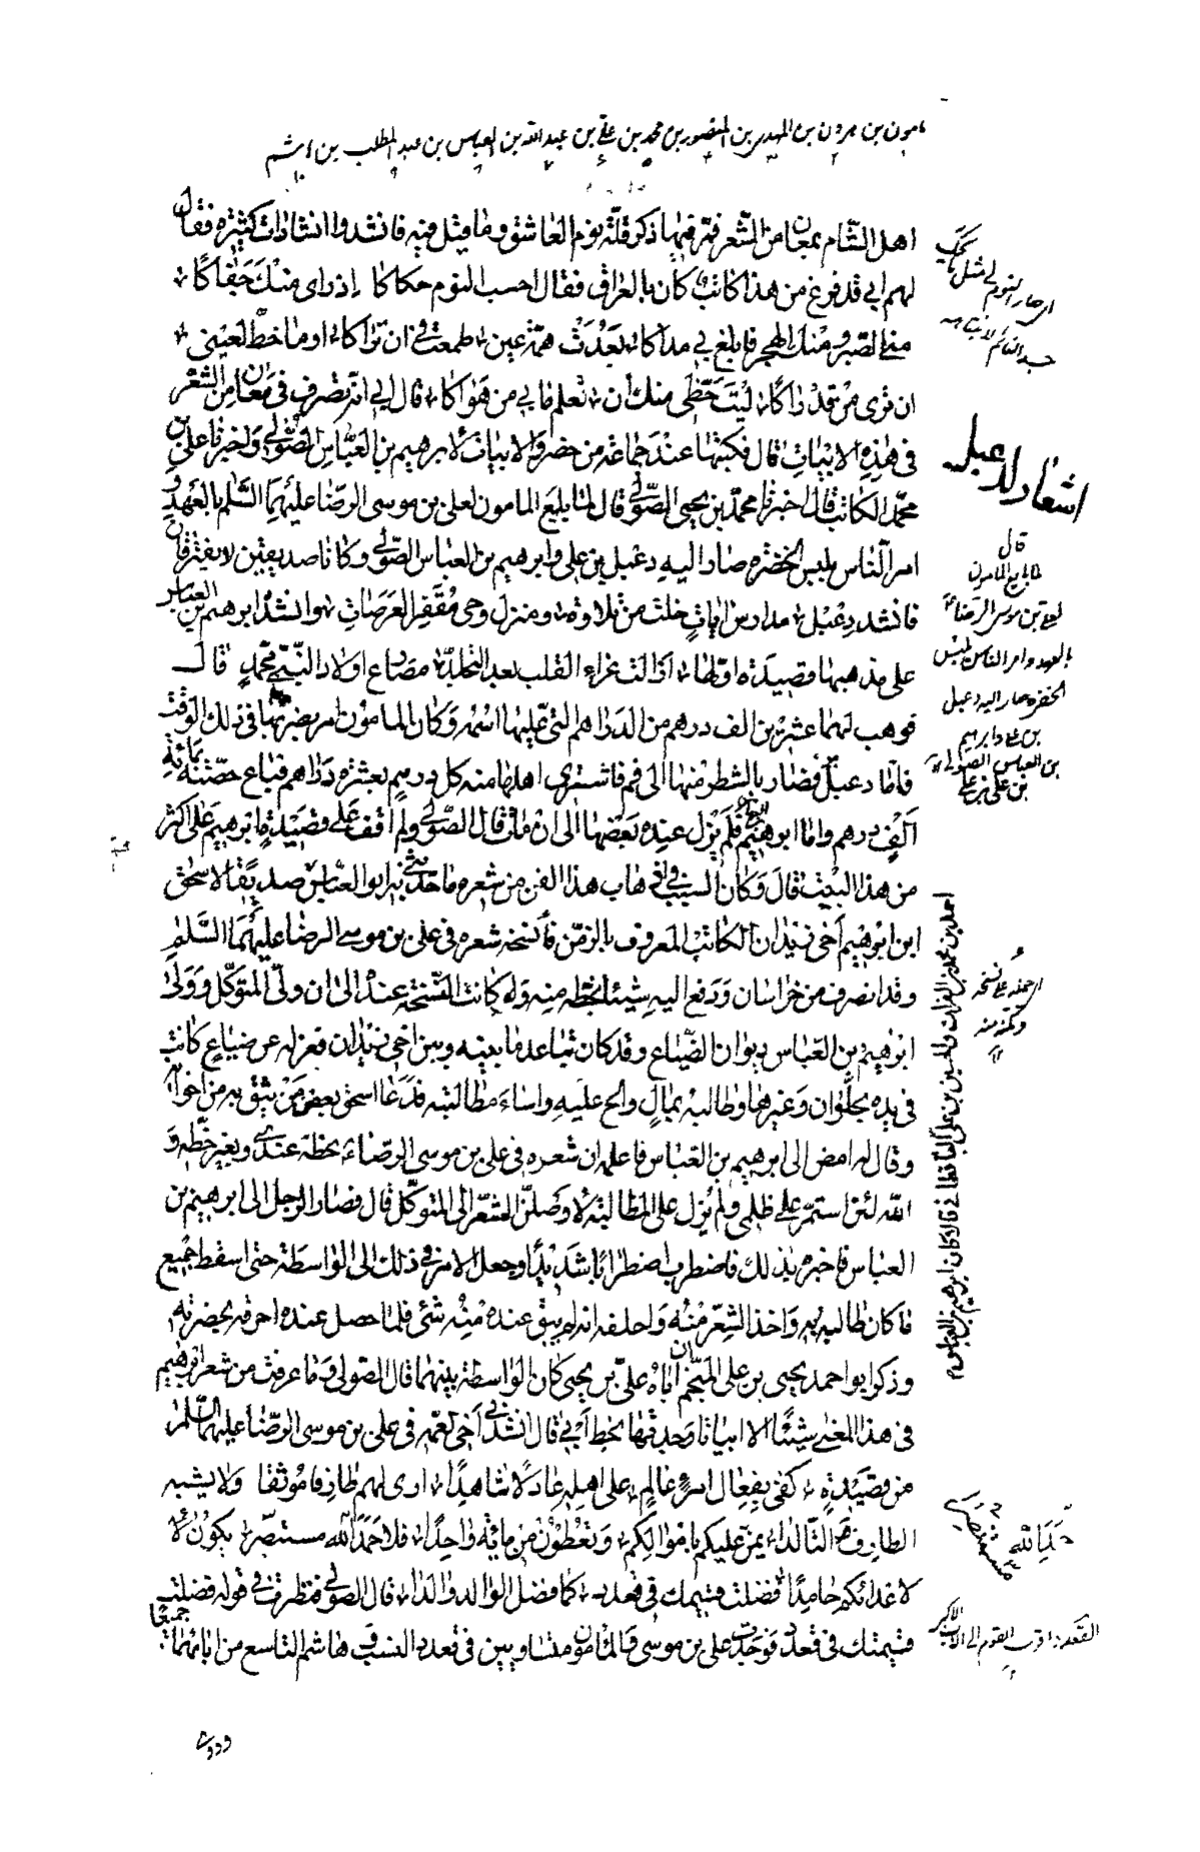 مامون بن هرون بن المهدي بن المنصور بن محمد بن علي بن عبد الله بن العباس بن عبد المطلب بن هاشم
اهل الشام بمعان من الشعر فمنها ذكر قلة نوم العاشق وما قيل فيه فانشدوا انشادات كثيرة فقال
لهم ابي قد فرغ من هذا كاتب كان بالعراق فقال احسب النوم حكاكا إذ راى منك جفاكا
مني الصبر ومنك الهجر فابلغ بي مداكا بعدت همة عين طمعت في ان تراكا او ما حظ لعيني
ان ترى من قد راكا ليت حظي منك ان تعلم ما بي من هواكا قال ابي انه تصرف في معان من الشعر
في هذه الابيات قال فكتبتها عند جماعة من حضر والابيات لابرهيم بن العباس الصولي واخبرنا علي بن
محمد الكاتب قال اخبرنا محمد بن يحيى الصولي قال لما بايع المامون لعلي بن موسى الرضا عليهما السلم بالعهد و
امر الناس بلبس الخضرة صار اليه دعبل بن علي وابرهيم بن العباس الصولي وكانا صديقين لا يفترقان
فانشد دعبل مدارس ايات خلت من تلاوة ومنزل وحي مقفر العرصات وانشد ابرهيم بن العباس
على مذهبها قصيدة اولها ازالت عزاء القلب بعد التجلد مصارع اولاد النبي محمد قال
فوهب لهما عشرين الف درهم من الدراهم التي عليها اسمه وكان المامون امر بضربها في ذلك الوقت
فاما دعبل فصار بالشطر منها الى قم فاشترى اهلها منه كل درهم بعشرة دراهم فباع حصته بمائة
الف درهم واما ابرهيم فلم يزل عنده بعضها الى ان مات قال الصولي ولم اقف على قصيدة ابرهيم على اكثر
من هذا البيت قال وكان السبب في ذهاب هذا الفن من شعره ما حدثني به ابو العباس صديقا لاسحق
ابن ابرهيم اخي زيدان الكاتب المعروف بالزمن فانسخه شعره في علي بن موسى الرضا عليهما السلم
وقد انصرف من خراسان ودفع اليه شيئا بخطه منه وكانت النسخة عنده الى ان ولي المتوكل وولي
ابرهيم بن العباس ديوان الضياع وقد كان تباعد ما بينه وبين اخي زيدان فعزله عن ضياع كانت
في يده بحلوان وغيرها وطالبه بمال والح عليه واساء مطالبته فدعا اسحق بعض من يثق به من اخوانه
وقال له امض الى ابرهيم بن العباس فاعلمه ان شعره في علي بن موسى الرضا بخطه عندي وبغير خطه و
الله لئن استمر على ظلمي ولم يزل على المطالبة لاوصلن الشعر الى المتوكل قال فصار الرجل الى ابرهيم بن
العباس فاخبره بذلك فاضطرب اضطرابا شديدا وجعل الامر في ذلك الى الواسطة حتى اسقط جميع
ما كان طالبه به واخذ الشعر منه واحلفه انه لم يبق عنده منه شئ فلما حصل عنده احرقه بحضرته
وذكر ابو احمد يحيى بن علي المنجم ان اباه علي بن يحيى كان الواسطة بينهما قال الصولي وما عرفت من شعر ابرهيم
في هذا المعنى شيئا الا ابياتا وجدتها بخط ابي قال انشدني اخي لعمه في علي بن موسى الرضا عليهما السلم
من قصيدة كفى بفعال امرء عالم على اهله عادلا شاهدا ارى لهم طارفا مونقا ولا يشبه
الطارف التالدا يمن عليكم باموالكم وتعطون من مائة واحدا فلا حمد الله مستبصر يكون لا
لاعدائكم حامدا فضلت قسيمك في قعدد كما فضل الوالد الوالدا قال الصولي فنظرت في قوله فضلت
قسيمك في قعدد فوجدت علي بن موسى والمامون متساويين في قعدد النسب هاشم التاسع من ابائهما جميعا
اشعار لدعبل
قال
لما بايع المامون
لعلي بن موسى الرضا
بالعهد وامر الناس بلبس
الخضرة صار اليه دعبل
بن علي وابرهيم
بن العباس الصولي
احمد بن محمد بن الفرات والحسين بن علي الباقطاني قالا كان ابرهيم بن العباس
القعدد اقرب القوم الى الاب الاكبر